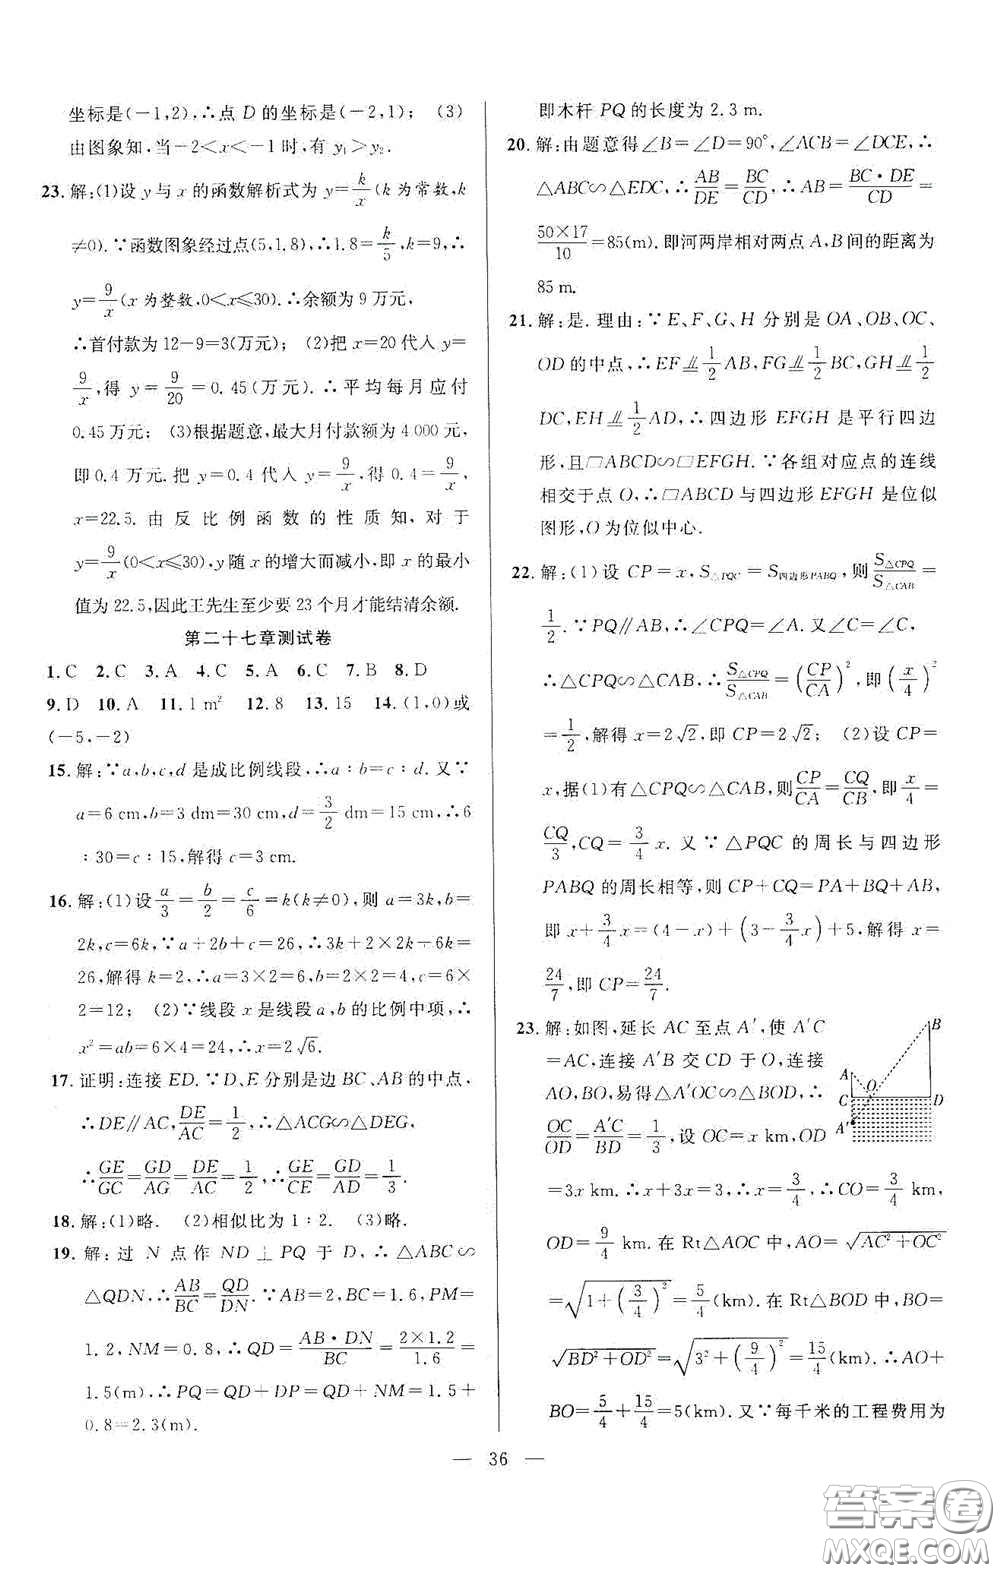 坐标是(-1,2),∴点 D 的坐标是(-2,1); (3)
由图象知,当-2<x<-1时,有 y₁>y₂.
23.解:(1)设 y 与 x 的函数解析式为 y=k/x(k 为常数,k
≠0).∵函数图象经过点(5,1.8),∴1.8=k/5,k=9,∴
y=9/x(x 为整数,0<x≤30).∴余额为 9 万元,
∴首付款为 12-9=3(万元); (2)把 x=20 代入 y=
9/x,得 y=9/20=0.45(万元).∴平均每月应付
0.45 万元; (3)根据题意,最大月付款额为 4 000 元,
即 0.4 万元.把 y=0.4 代入 y=9/x,得 0.4=9/x,
x=22.5.由反比例函数的性质知,对于
y=9/x(0<x≤30),y 随 x 的增大而减小,即 x 的最小
值为 22.5,因此王先生至少要 23 个月才能结清余额.
第二十七章测试卷
1.C 2.C 3.A 4.C 5.C 6.C 7.B 8.D
9.D 10.A 11.1 m² 12.8 13.15 14.(1,0)或
(-5,-2)
15.解:∵a,b,c,d 是成比例线段,∴a∶b=c∶d.又∵
a=6 cm,b=3 dm=30 cm,d=3/2 dm=15 cm,∴6
∶30=c∶15,解得 c=3 cm.
16.解:(1)设a/3=b/2=c/6=k(k≠0),则 a=3k,b=
2k,c=6k,∵a+2b+c=26,∴3k+2×2k+6k=
26,解得 k=2,∴a=3×2=6,b=2×2=4,c=6×
2=12; (2)∵线段 x 是线段 a,b 的比例中项,∴
x²=ab=6×4=24,∴x=2√6.
17.证明:连接 ED.∵D、E 分别是边 BC、AB 的中点,
∴DE∥AC,DE/AC=1/2,∴△ACG∽△DEG,
∴GE/GC=GD/AG=DE/AC=1/2,∴GE/CE=GD/AD=1/3.
18.解:(1)略. (2)相似比为 1∶2. (3)略.
19.解:过 N 点作 ND⊥PQ 于 D,∴△ABC∽
△QDN,∴AB/BC=QD/DN.∵AB=2,BC=1.6,PM=
1.2,NM=0.8,∴QD=AB·DN/BC=2×1.2/1.6=
1.5(m).∴PQ=QD+DP=QD+NM=1.5+
0.8=2.3(m).
即木杆 PQ 的长度为 2.3 m.
20.解:由题意得∠B=∠D=90°,∠ACB=∠DCE,∴
△ABC∽△EDC,∴AB/DE=BC/CD,∴AB=BC·DE/CD=
50×17/10=85(m).即河两岸相对两点 A,B 间的距离为
85 m.
21.解:是.理由:∵E、F、G、H 分别是 OA、OB、OC、
OD 的中点,∴EF⫽1/2AB,FG⫽1/2BC,GH⫽1/2
DC,EH⫽1/2AD,∴四边形 EFGH 是平行四边
形,且□ABCD∽□EFGH.∵各组对应点的连线
相交于点 O,∴□ABCD 与四边形 EFGH 是位似
图形,O 为位似中心.
22.解:(1)设 CP=x,S△PQC=S四边形PABQ,则S△CPQ/S△CAB=
1/2.∵PQ∥AB,∴∠CPQ=∠A.又∠C=∠C,
∴△CPQ∽△CAB,∴S△CPQ/S△CAB=(CP/CA)²,即(x/4)²
=1/2,解得 x=2√2,即 CP=2√2; (2)设 CP=
x,据(1)有△CPQ∽△CAB,则CP/CA=CQ/CB,即x/4=
CQ/3,CQ=3/4x.又∵△PQC 的周长与四边形
PABQ 的周长相等,则 CP+CQ=PA+BQ+AB,
即 x+3/4x=(4-x)+(3-3/4x)+5,解得 x=
24/7,即 CP=24/7.
23.解:如图,延长 AC 至点 A′,使 A′C
=AC,连接 A′B 交 CD 于 O,连接
AO,BO,易得△A′OC∽△BOD,∴
OC/OD=A′C/BD=1/3,设 OC=x km,OD
=3x km.∴x+3x=3,x=3/4,∴CO=3/4 km,
OD=9/4 km.在 Rt△AOC 中,AO=√(AC²+OC²)
=√(1+(3/4)²)=5/4(km).在 Rt△BOD 中,BO=
√(BD²+OD²)=√(3²+(9/4)²)=15/4(km).∴AO+
BO=5/4+15/4=5(km).又∵每千米的工程费用为
B
A
O
C
D
A′
— 36 —
答案卷
MXQE.COM